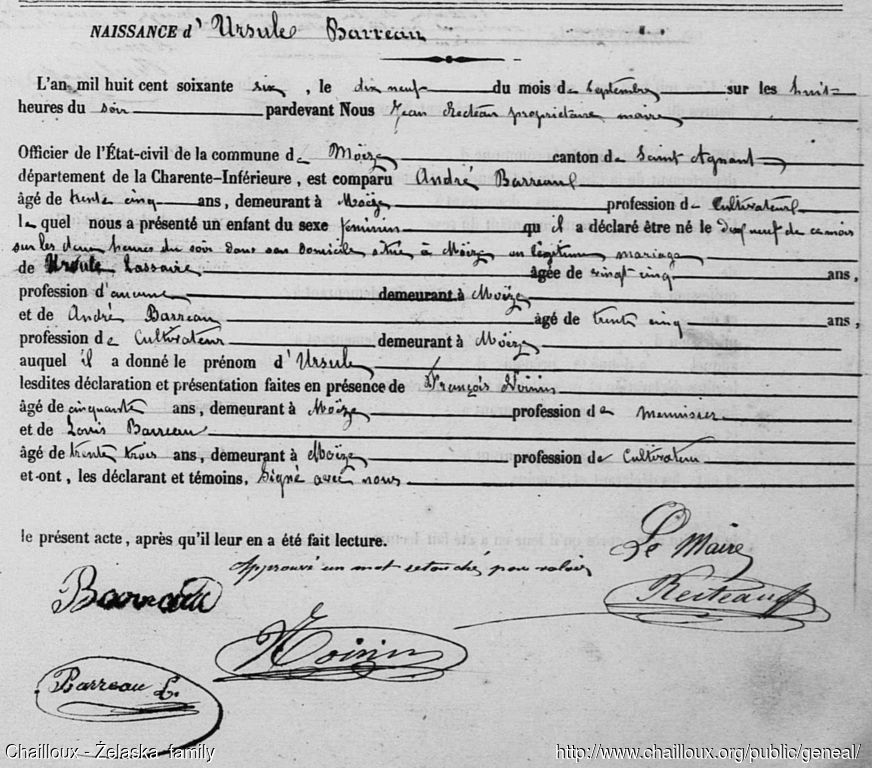 NAISSANCE d' Ursule Barreau
L'an mil huit cent soixante six, le dix neuf du mois de Septembre sur les huit
heures du soir pardevant Nous Jean Recteau propriétaire maire
Officier de l'État-civil de la commune de Moëze canton de Saint Agnant
département de la Charente-Inférieure, est comparu André Barreau
âgé de trente cinq ans, demeurant à Moëze profession de Cultivateur
lequel nous a présenté un enfant du sexe féminin qu'il a déclaré être né le dix neuf de ce mois
sur les deux heures du soir dans son domicile situé à Moëze en légitime mariage
de Ursule Lassaire âgée de vingt cinq ans,
profession d'aucune demeurant à Moëze
et de André Barreau âgé de trente cinq ans,
profession de Cultivateur demeurant à Moëze
auquel il a donné le prénom d'Ursule
lesdites déclaration et présentation faites en présence de François
âgé de cinquante ans, demeurant à Moëze profession de Menuisier
et de Louis Barreau
âgé de trente trois ans, demeurant à Moëze profession de Cultivateur
et ont, les déclarant et témoins, Signé avec nous
le présent acte, après qu'il leur en a été fait lecture.
Approuvé un mot retouché pour valoir
Le Maire
Barreau
Recteau
Barreau L.
Chailloux - Żelaska family
http://www.chailloux.org/public/geneal/